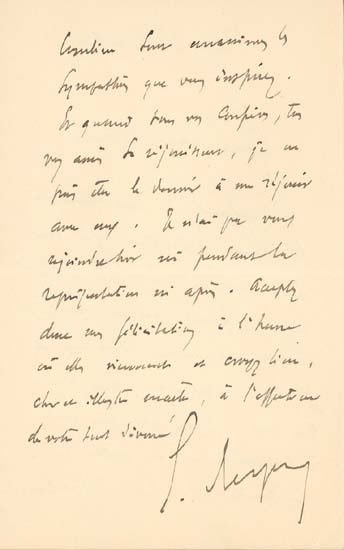 combien sont unanimes les
sympathies que vous inspirez.
Et quand tous vos confrères, tous
vos amis se réjouissent, je ne
puis être le dernier à me réjouir
avec eux. Je n'ai pu vous
rejoindre hier ni pendant la
représentation ni après. Acceptez
donc mes félicitations à l'heure
où elles viennent et croyez bien,
cher et illustre maître, à l'affection
de votre tout dévoué